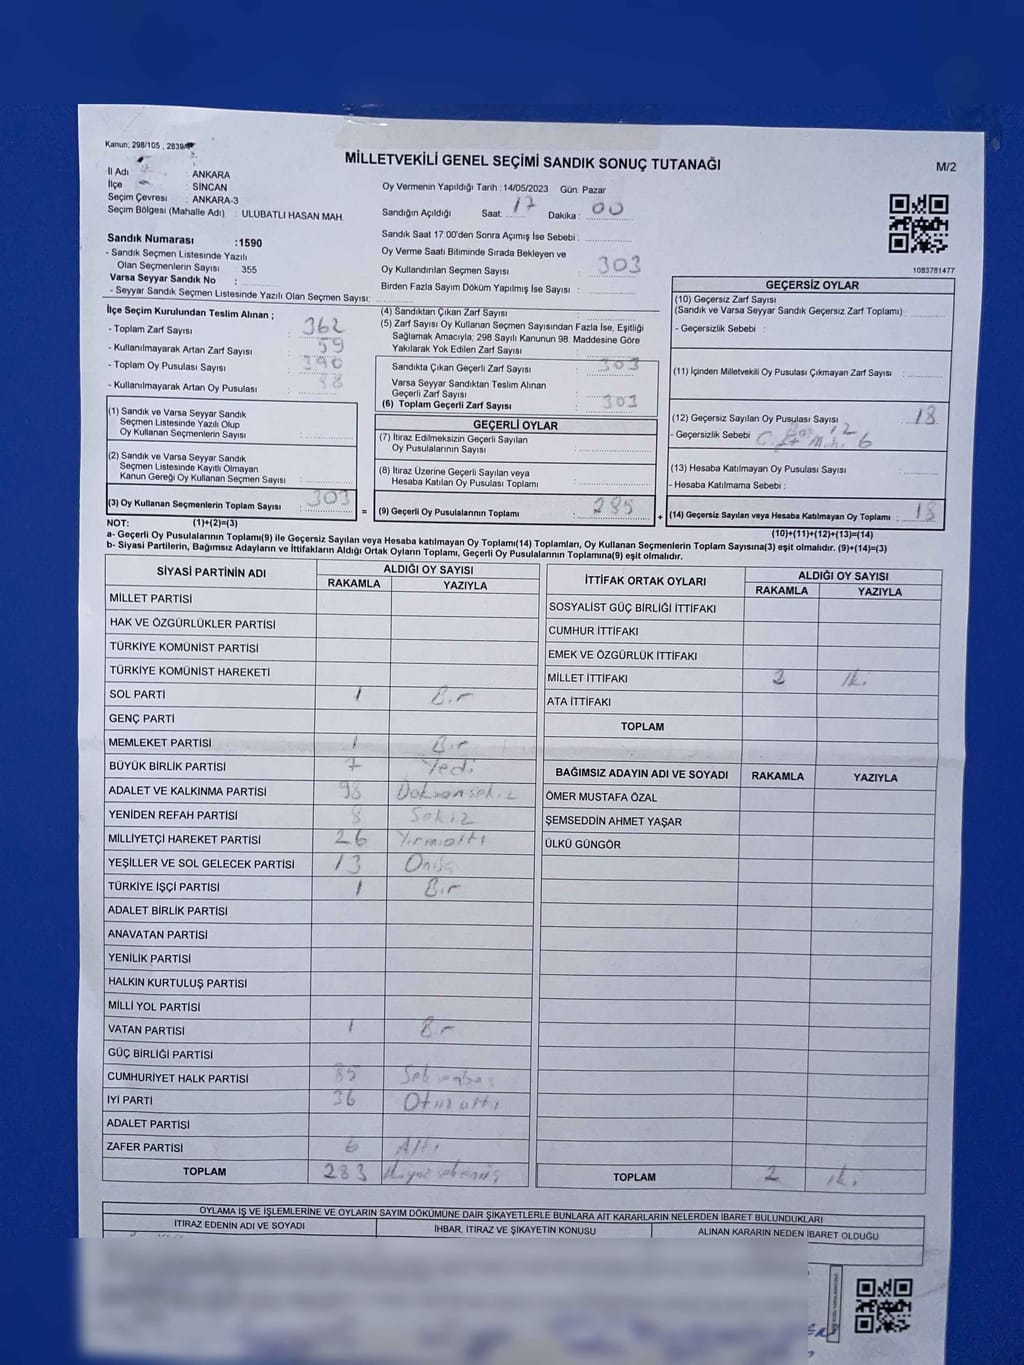 Kanun; 298/105 , 2839/
MİLLETVEKİLİ GENEL SEÇİMİ SANDIK SONUÇ TUTANAĞI
M/2
İl Adı : ANKARA
İlçe : SİNCAN
Seçim Çevresi : ANKARA-3
Seçim Bölgesi (Mahalle Adı) : ULUBATLI HASAN MAH.
Oy Vermenin Yapıldığı Tarih : 14/05/2023 Gün: Pazar
Sandığın Açıldığı Saat: 17 Dakika : 00
Sandık Saat 17:00'den Sonra Açımış İse Sebebi :
Oy Verme Saati Bitiminde Sırada Bekleyen ve
Oy Kullandırılan Seçmen Sayısı : 303
Birden Fazla Sayım Döküm Yapılmış İse Sayısı :
1083781477
Sandık Numarası :1590
- Sandık Seçmen Listesinde Yazılı
Olan Seçmenlerin Sayısı : 355
Varsa Seyyar Sandık No :
- Seyyar Sandık Seçmen Listesinde Yazılı Olan Seçmen Sayısı:
İlçe Seçim Kurulundan Teslim Alınan ;
- Toplam Zarf Sayısı : 362
- Kullanılmayarak Artan Zarf Sayısı : 59
- Toplam Oy Pusulası Sayısı : 390
- Kullanılmayarak Artan Oy Pusulası : 88
(1) Sandık ve Varsa Seyyar Sandık
Seçmen Listesinde Yazılı Olup
Oy Kullanan Seçmenlerin Sayısı :
(2) Sandık ve Varsa Seyyar Sandık
Seçmen Listesinde Kayıtlı Olmayan
Kanun Gereği Oy Kullanan Seçmen Sayısı :
(3) Oy Kullanan Seçmenlerin Toplam Sayısı : 303
(4) Sandıktan Çıkan Zarf Sayısı :
(5) Zarf Sayısı Oy Kullanan Seçmen Sayısından Fazla İse, Eşitliği
Sağlamak Amacıyla; 298 Sayılı Kanunun 98. Maddesine Göre
Yakılarak Yok Edilen Zarf Sayısı :
Sandıkta Çıkan Geçerli Zarf Sayısı : 303
Varsa Seyyar Sandıktan Teslim Alınan
Geçerli Zarf Sayısı :
(6) Toplam Geçerli Zarf Sayısı : 303
GEÇERLİ OYLAR
(7) İtiraz Edilmeksizin Geçerli Sayılan
Oy Pusulalarının Sayısı :
(8) İtiraz Üzerine Geçerli Sayılan veya
Hesaba Katılan Oy Pusulası Toplamı :
= (9) Geçerli Oy Pusulalarının Toplamı : 285
GEÇERSİZ OYLAR
(10) Geçersiz Zarf Sayısı
(Sandık ve Varsa Seyyar Sandık Geçersiz Zarf Toplamı) :
- Geçersizlik Sebebi :
(11) İçinden Milletvekili Oy Pusulası Çıkmayan Zarf Sayısı :
(12) Geçersiz Sayılan Oy Pusulası Sayısı : 18
- Geçersizlik Sebebi : 12 6
(13) Hesaba Katılmayan Oy Pusulası Sayısı :
- Hesaba Katılmama Sebebi :
+ (14) Geçersiz Sayılan veya Hesaba Katılmayan Oy Toplamı : 18
NOT: (1)+(2)=(3) (10)+(11)+(12)+(13)=(14)
a- Geçerli Oy Pusulalarının Toplamı(9) ile Geçersiz Sayılan veya Hesaba katılmayan Oy Toplamı(14) Toplamları, Oy Kullanan Seçmenlerin Toplam Sayısına(3) eşit olmalıdır. (9)+(14)=(3)
b- Siyasi Partilerin, Bağımsız Adayların ve İttifakların Aldığı Ortak Oyların Toplamı, Geçerli Oy Pusulalarının Toplamına(9) eşit olmalıdır.
SİYASİ PARTİNİN ADI ALDIĞI OY SAYISI
RAKAMLA YAZIYLA
MİLLET PARTİSİ
HAK VE ÖZGÜRLÜKLER PARTİSİ
TÜRKİYE KOMÜNİST PARTİSİ
TÜRKİYE KOMÜNİST HAREKETİ
SOL PARTİ 1 Bir
GENÇ PARTİ
MEMLEKET PARTİSİ 1 Bir
BÜYÜK BİRLİK PARTİSİ 7 Yedi
ADALET VE KALKINMA PARTİSİ 98 Doksansekiz
YENİDEN REFAH PARTİSİ 8 Sekiz
MİLLİYETÇİ HAREKET PARTİSİ 26 Yirmialtı
YEŞİLLER VE SOL GELECEK PARTİSİ 13 Onüç
TÜRKİYE İŞÇİ PARTİSİ 1 Bir
ADALET BİRLİK PARTİSİ
ANAVATAN PARTİSİ
YENİLİK PARTİSİ
HALKIN KURTULUŞ PARTİSİ
MİLLİ YOL PARTİSİ
VATAN PARTİSİ 1 Bir
GÜÇ BİRLİĞİ PARTİSİ
CUMHURİYET HALK PARTİSİ 85 Seksenbeş
İYİ PARTİ 36 Otuzaltı
ADALET PARTİSİ
ZAFER PARTİSİ 6 Altı
TOPLAM 283 İkiyüzseksenüç
İTTİFAK ORTAK OYLARI ALDIĞI OY SAYISI
RAKAMLA YAZIYLA
SOSYALİST GÜÇ BİRLİĞİ İTTİFAKI
CUMHUR İTTİFAKI
EMEK VE ÖZGÜRLÜK İTTİFAKI
MİLLET İTTİFAKI 2 İki
ATA İTTİFAKI
TOPLAM
BAĞIMSIZ ADAYIN ADI VE SOYADI RAKAMLA YAZIYLA
ÖMER MUSTAFA ÖZAL
ŞEMSEDDİN AHMET YAŞAR
ÜLKÜ GÜNGÖR
TOPLAM 2 İki
OYLAMA İŞ VE İŞLEMLERİNE VE OYLARIN SAYIM DÖKÜMÜNE DAİR ŞİKAYETLERLE BUNLARA AİT KARARLARIN NELERDEN İBARET BULUNDUKLARI
İTİRAZ EDENİN ADI VE SOYADI İHBAR, İTİRAZ VE ŞİKAYETİN KONUSU ALINAN KARARIN NEDEN İBARET OLDUĞU